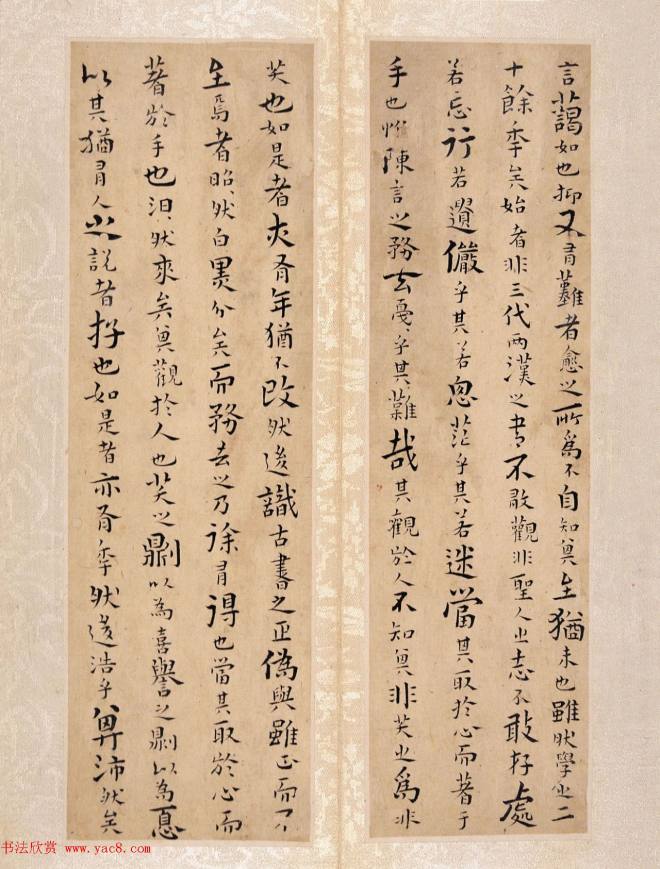 言藹如也抑不有難者愈之所爲不自知其至猶未也雖然學之二
十餘年矣始者非三代兩漢之書不敢觀非聖人之志不敢存處
若忘行若遺儼乎其若思茫乎其若迷當其取於心而著于
手也惟陳言之務去戛〻乎其難哉其觀於人不知其非笑之爲非
笑也如是者亦有年猶不改然後識古書之正僞與雖正而不
至焉者昭〻然白黑分矣而務去之乃徐有得也當其取於心而
著於手也汩〻然來矣其觀於人也笑之則以為喜譽之則以為憂
以其猶有人之說者存也如是者亦有年然後浩乎其沛然矣
书法欣赏 www.yac8.com